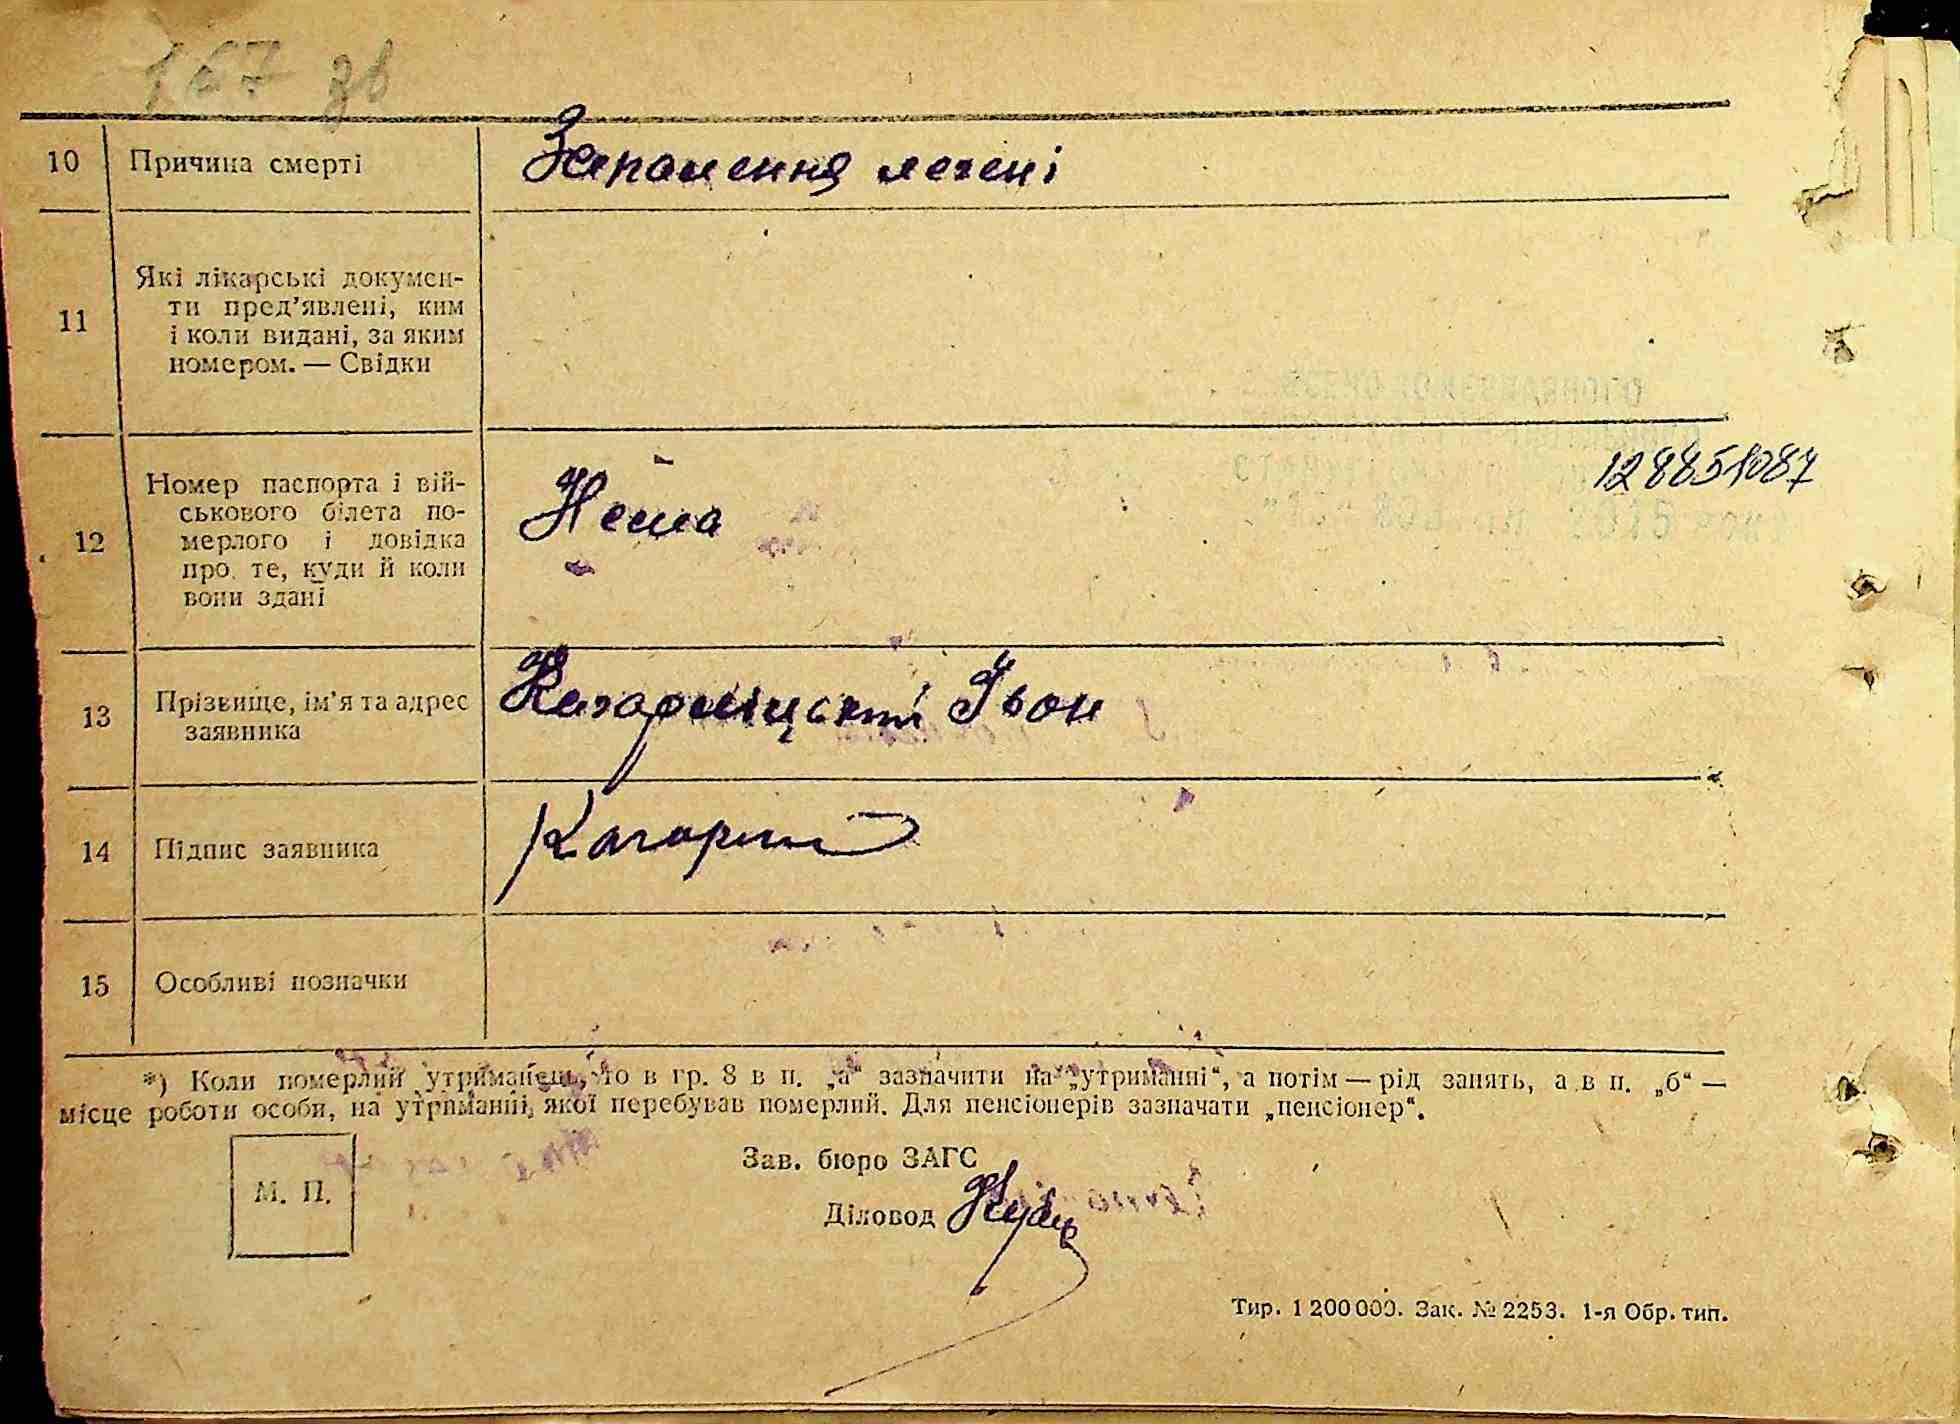 167 зв
10 Причина смерті Запалення легені
11 Які лікарські докумен-
ти пред’явлені, ким
і коли видані, за яким
номером. — Свідки
12 Номер паспорта і вій-
ськового білета по-
мерлого і довідка
про те, куди й коли
вони здані
Нема
128851087
13 Прізвище, ім’я та адрес
заявника
Іван
14 Підпис заявника
15 Особливі позначки
*) Коли померлий утриманець, то в гр. 8 в п. „а“ зазначити на „утриманні“, а потім — рід занять, а в п. „б“ —
місце роботи особи, на утриманні якої перебував померлий. Для пенсіонерів зазначати „пенсіонер“.
М. П.
Зав. бюро ЗАГС
Діловод
Тир. 1 200 000. Зак. № 2253. 1-я Обр. тип.